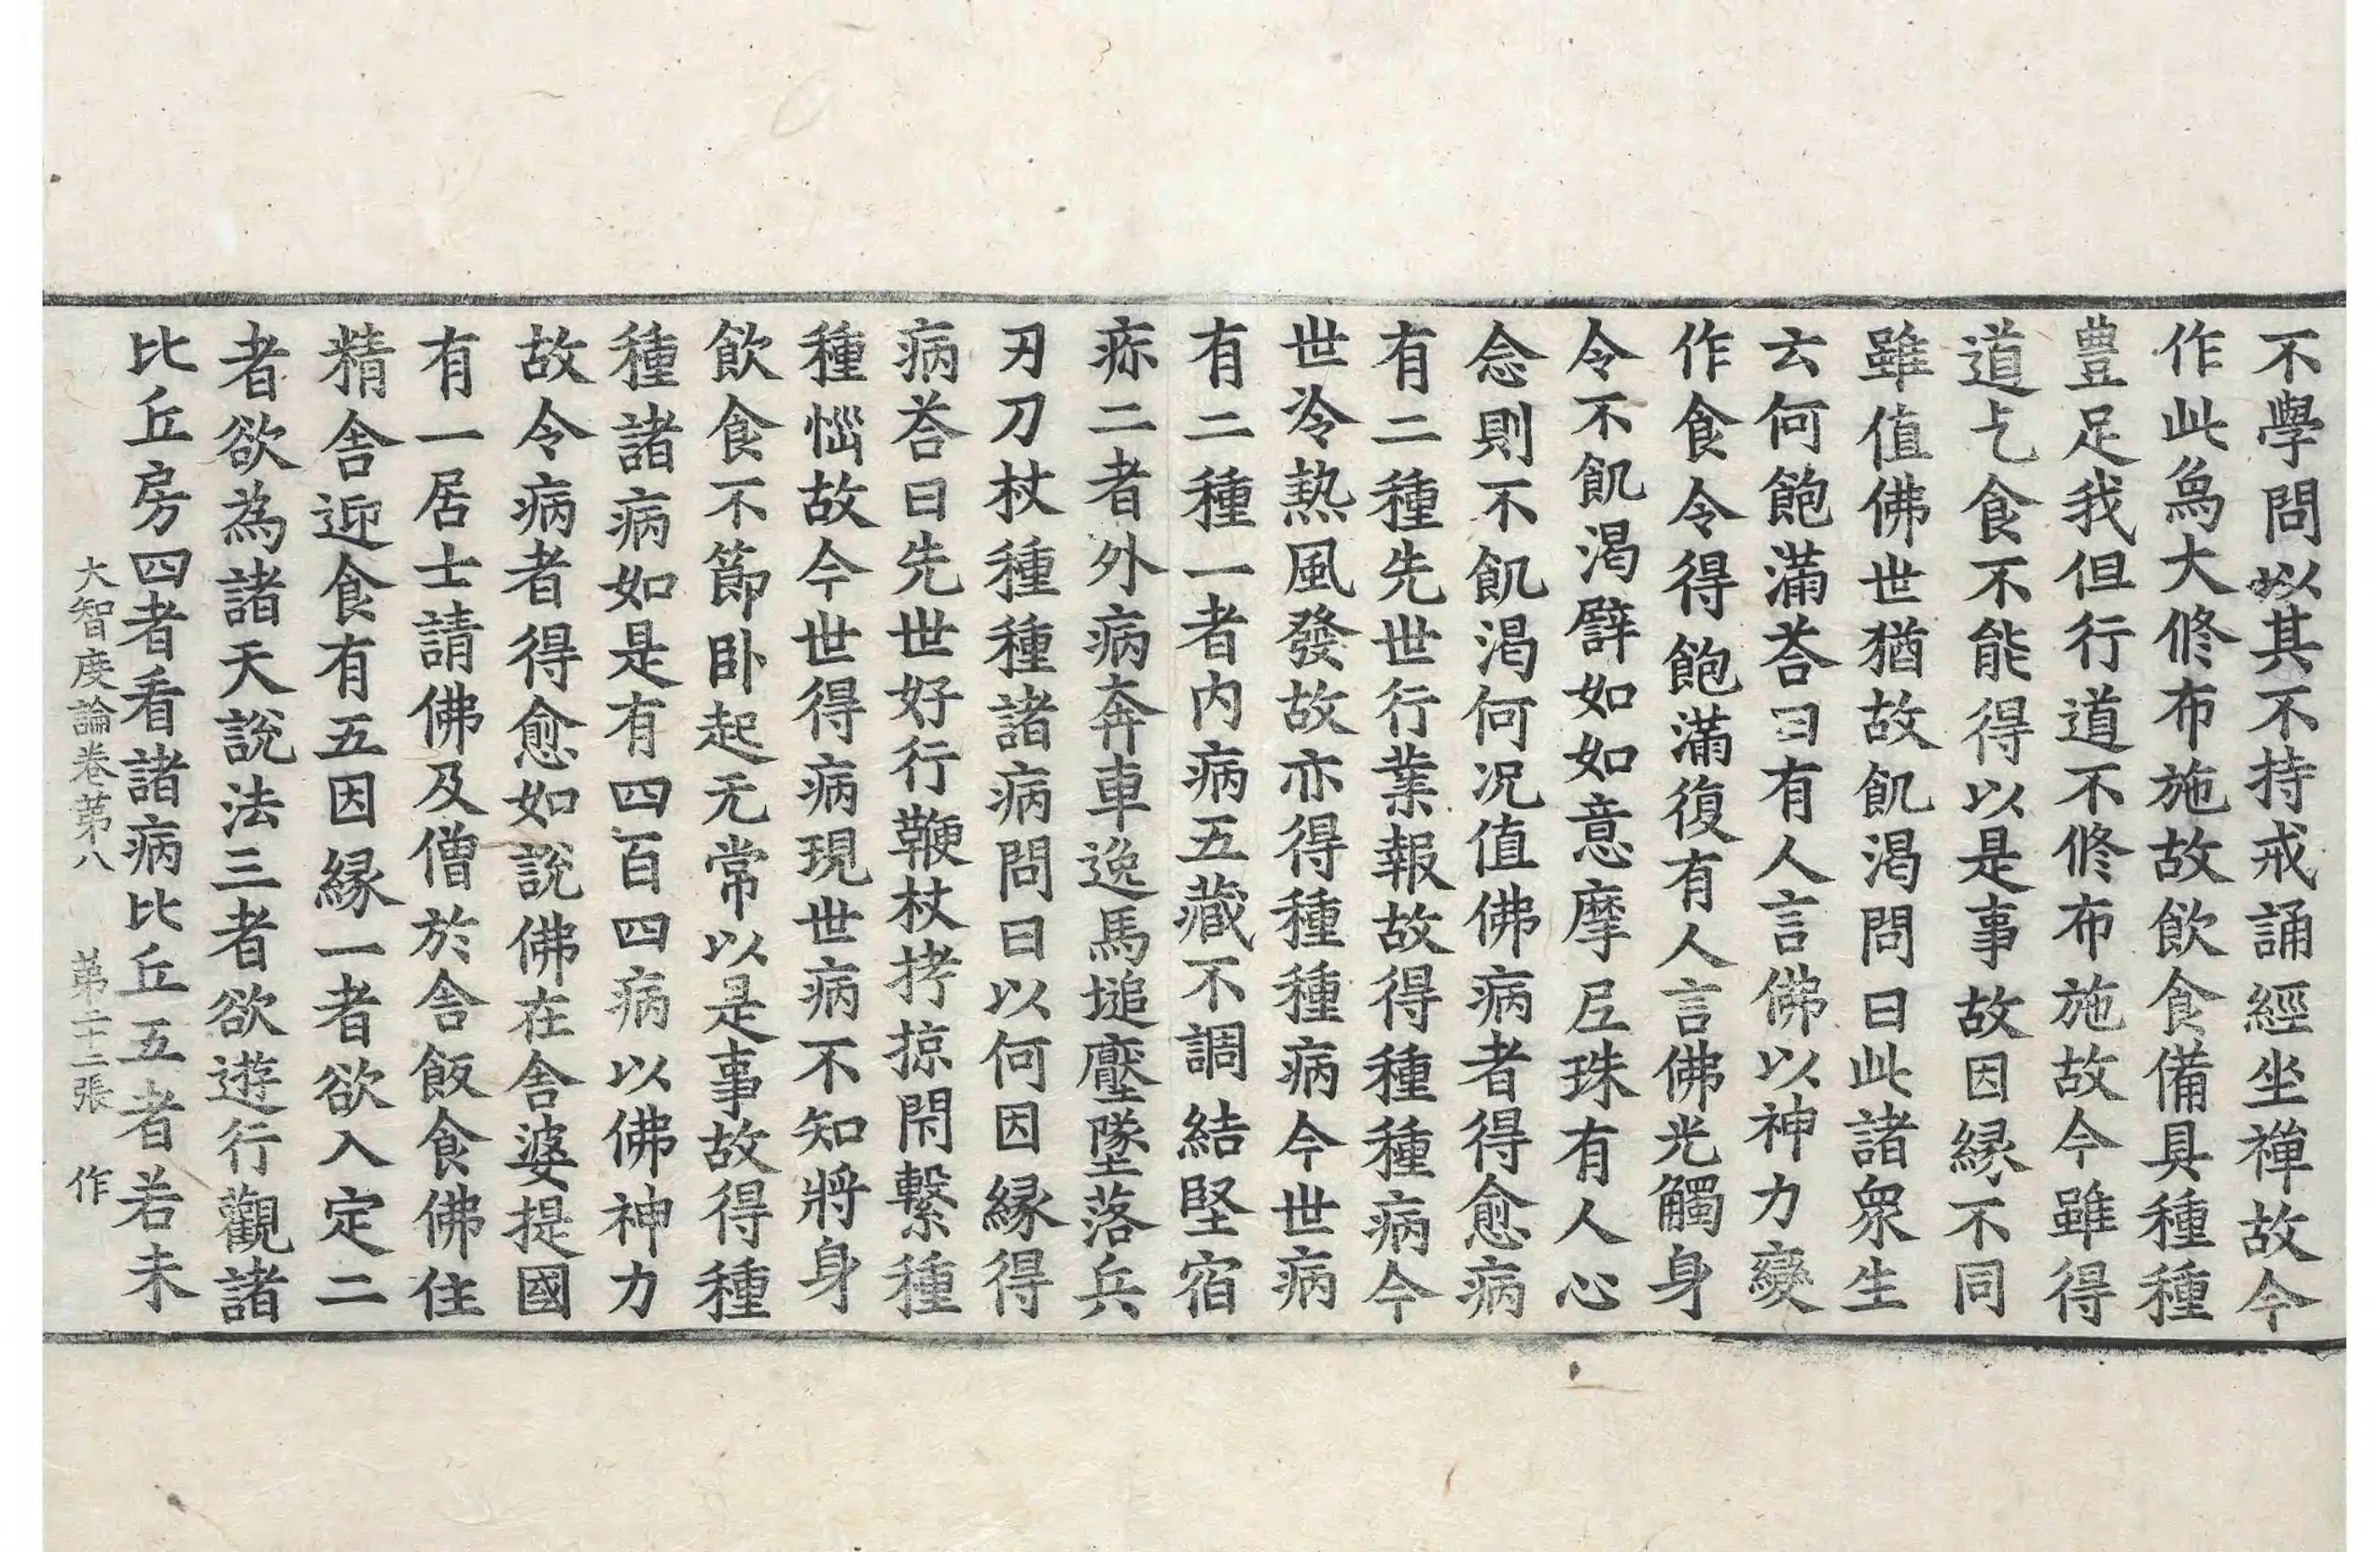 不學問以其不持戒誦經坐禪故今
作此爲大修布施故飲食備具種種
豊足我但行道不修布施故今雖得
道乞食不能得以是事故因緣不同
雖值佛世猶故飢渴問曰此諸衆生
云何飽滿荅曰有人言佛以神力變
作食令得飽滿復有人言佛光觸身
令不飢渴譬如如意摩尼珠有人心
念則不飢渴何況值佛病者得愈病
有二種先世行業報故得種種病今
世冷熱風發故亦得種種病今世病
有二種一者内病五藏不調結堅宿
疹二者外病奔車逸馬塠壓墜落兵
刃刀杖種種諸病問曰以何因緣得
病荅曰先世好行鞭杖拷掠閇繫種
種惱故今世得病現世病不知將身
飲食不節卧起无常以是事故得種
種諸病如是有四百四病以佛神力
故令病者得愈如說佛在舍婆提國
有一居士請佛及僧於舍飯食佛住
精舍迎食有五因緣一者欲入定二
者欲為諸天說法三者欲遊行觀諸
比丘房四者看諸病比丘五者若未
大智度論卷第八 第二十二張 作